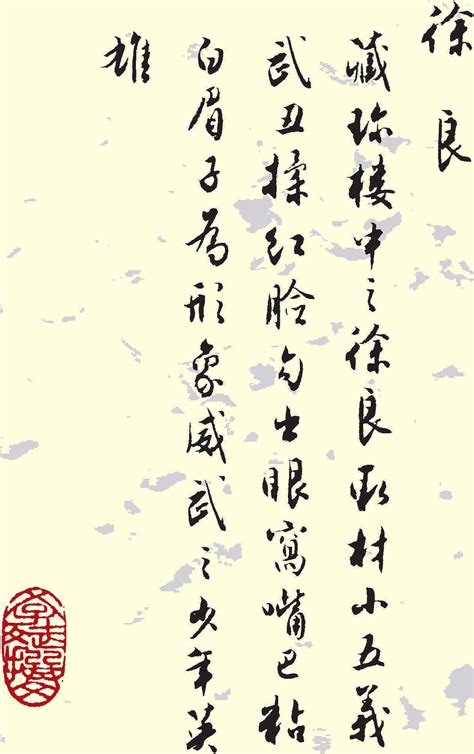 徐良
藏珍楼中之徐良取材小五義
武丑揉红脸勾出眼窝嘴巴粘
白眉子为形象威武之少年英
雄